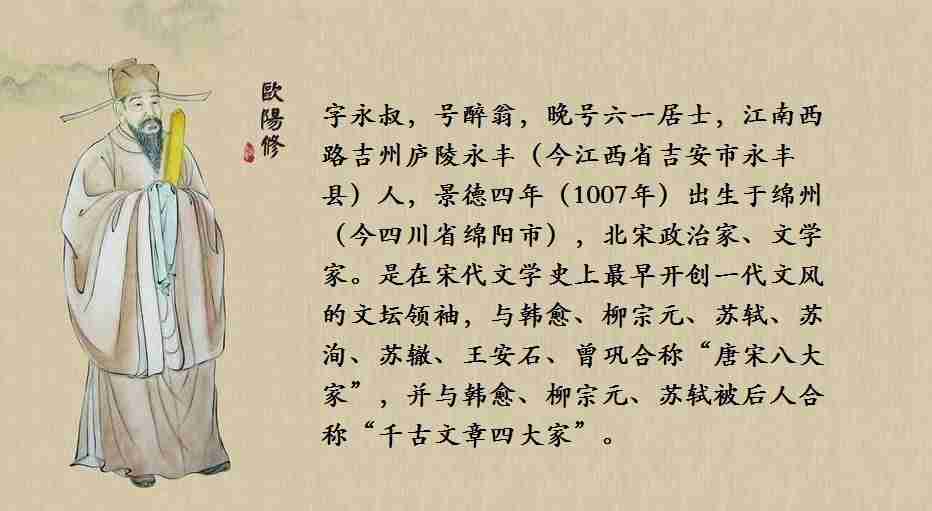 歐陽修
字永叔，号醉翁，晚号六一居士，江南西
路吉州庐陵永丰（今江西省吉安市永丰
县）人，景德四年（1007年）出生于绵州
（今四川省绵阳市），北宋政治家、文学
家。是在宋代文学史上最早开创一代文风
的文坛领袖，与韩愈、柳宗元、苏轼、苏
洵、苏辙、王安石、曾巩合称“唐宋八大
家”，并与韩愈、柳宗元、苏轼被后人合
称“千古文章四大家”。